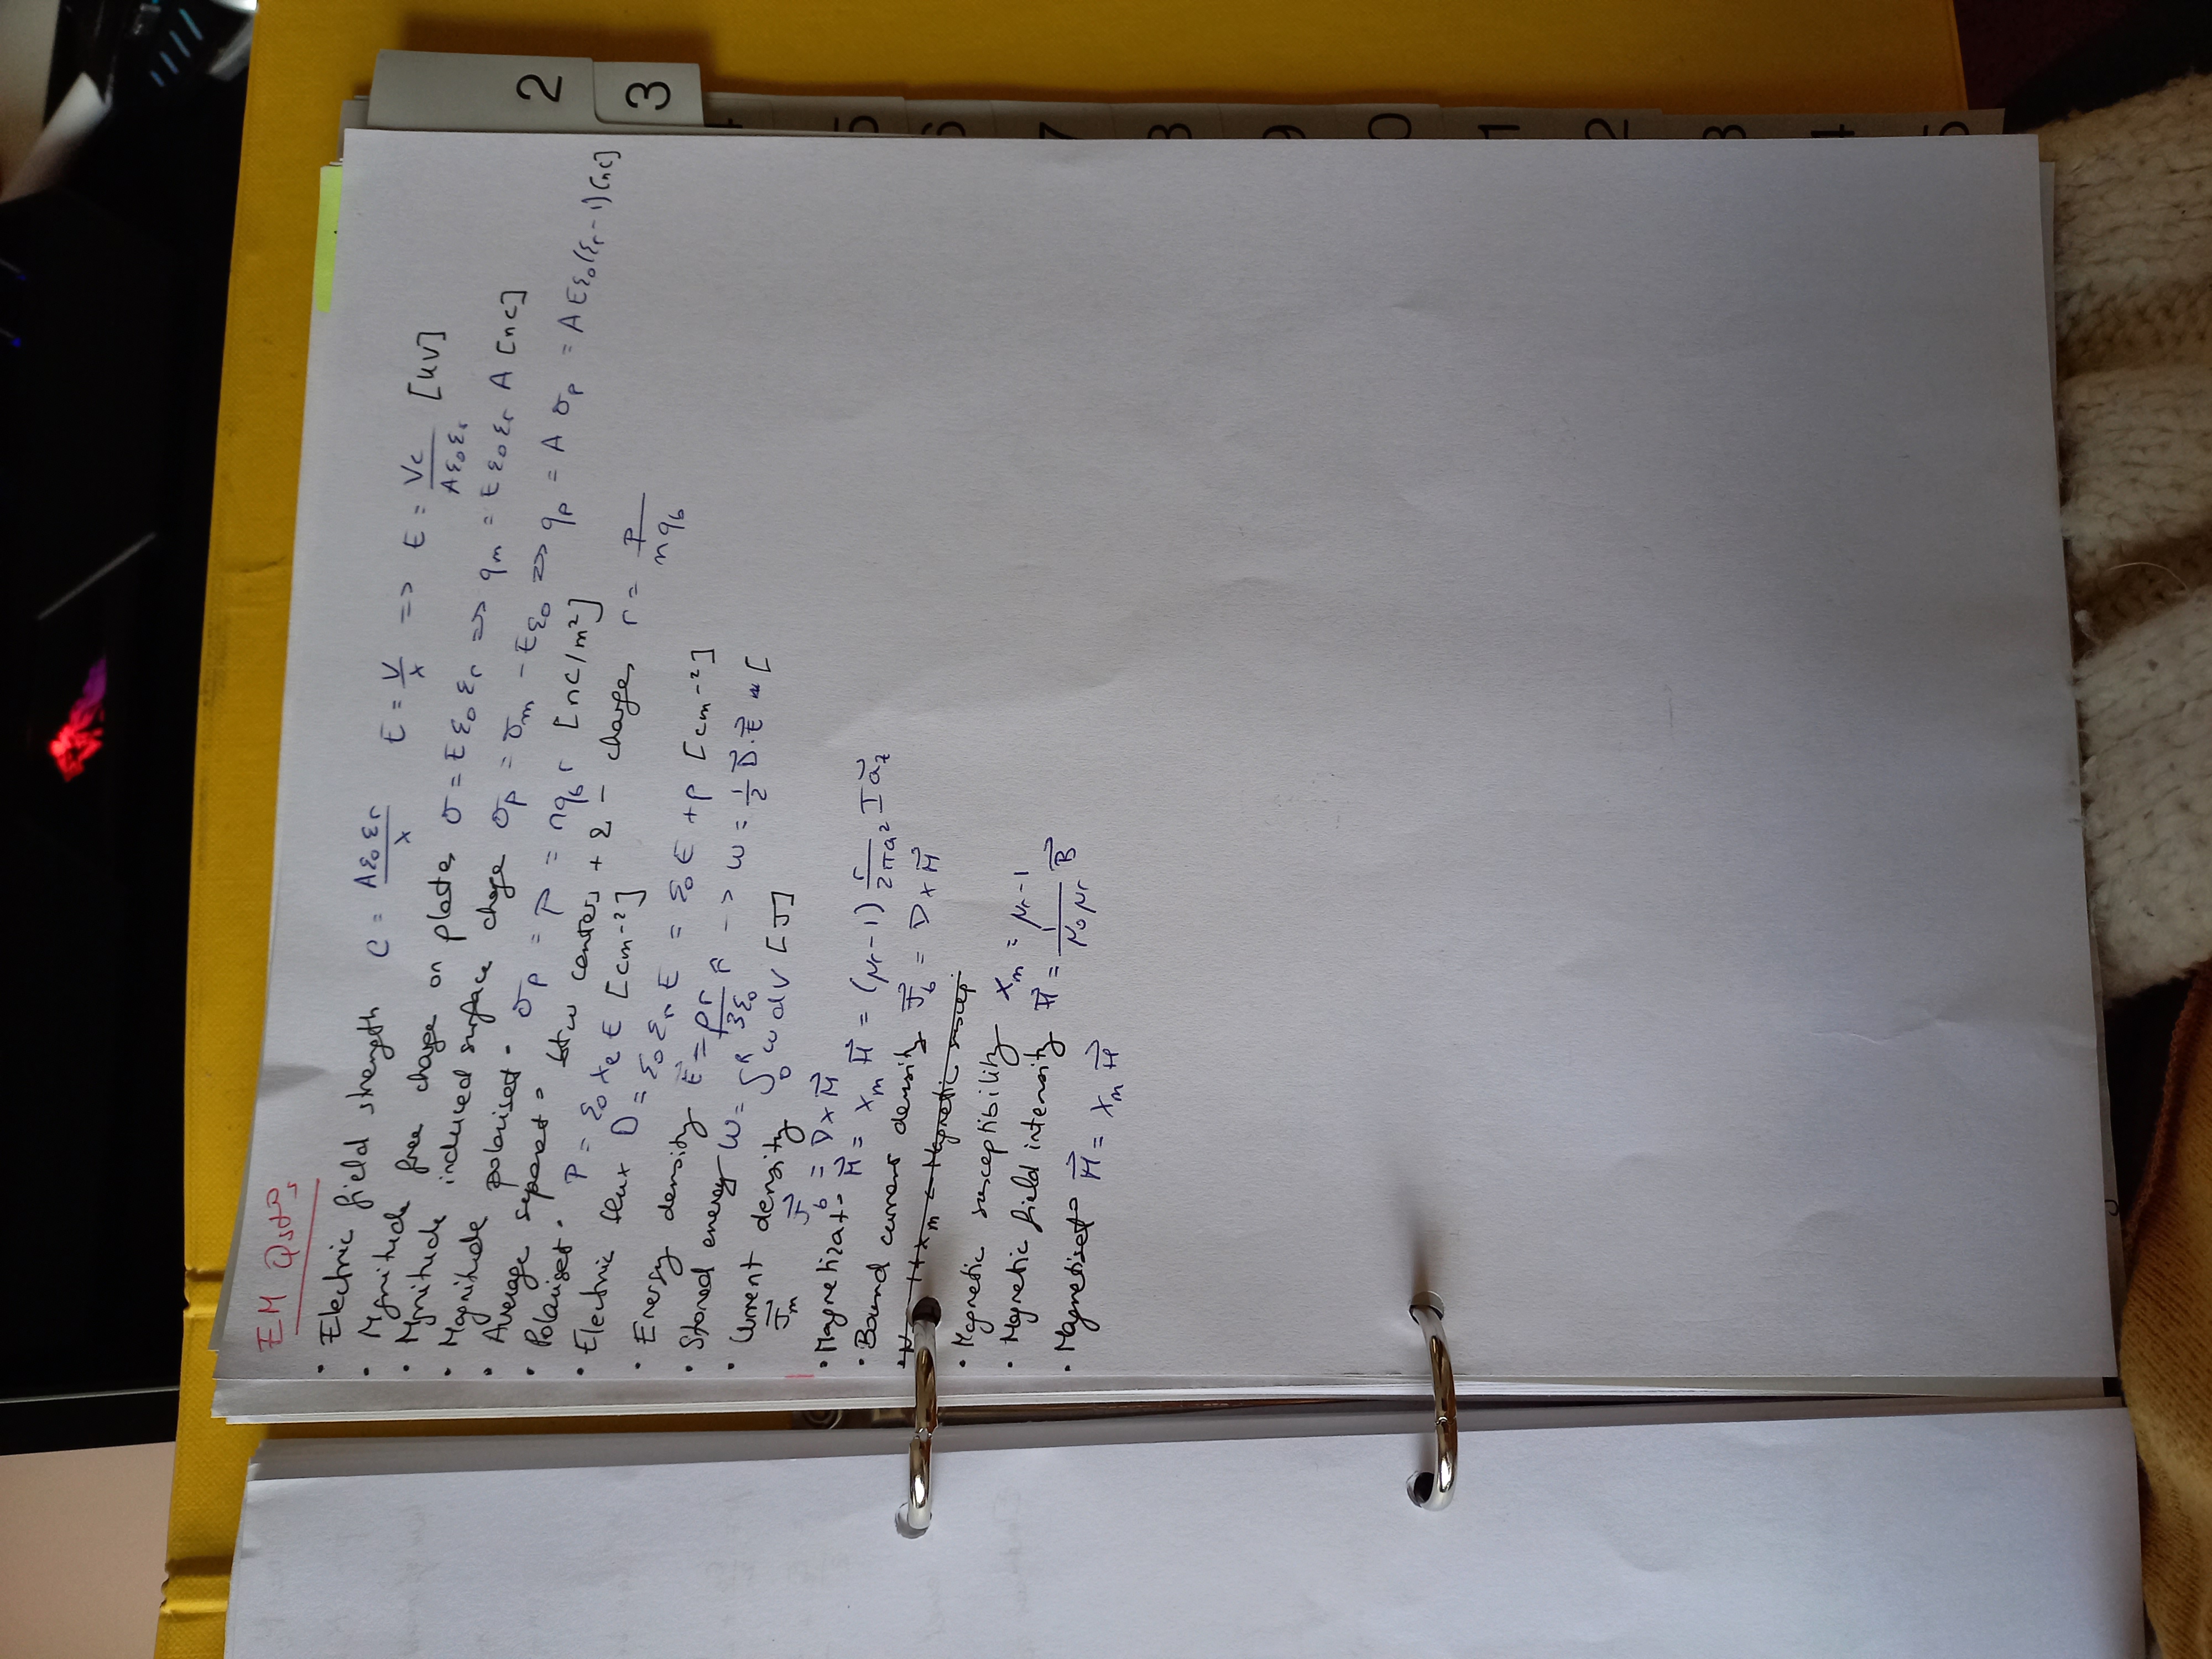 EM Qst°s
• Electric field strength C = Aε₀εr / x   E = V / x => E = Vc / Aε₀εr [kV]
• Mgnitude free charge on plates σ = Eε₀εr => qm = Eε₀εr A [nC]
• Mgnitude induced surface charge σp = σm - Eε₀ => qp = A σp = A Eε₀(εr-1) [nC]
• Magnitude polarisat° σp = P = nqb r [nC/m²]
• Average separat° btw centers + & - charges r = P / nqb
• Polarisat° P = ε₀ χe E [cm⁻²]
• Electric flux D = ε₀ εr E = ε₀E + p [cm⁻²]
• Energy density E⃗ = ρr / 3ε₀ r̂ -> w = 1/2 D⃗.E⃗ [
• Stored energy W = ∫₀ᴿ w dV [J]
• Current density
J⃗m   J⃗b = D × M⃗
• Magnetizat° M⃗ = χm H⃗ = (μr-1) r / 2πa² I a⃗z
• Bound current density J⃗b = D × M⃗
1 + χm Magnetic suscep
• Magnetic susceptibility χm = μr-1
• Magnetic field intensity H⃗ = 1 / μ₀μr B⃗
• Magnetisat° M⃗ = χm H⃗
2
3
5
6
7
8
9
0
1
2
3
4
5